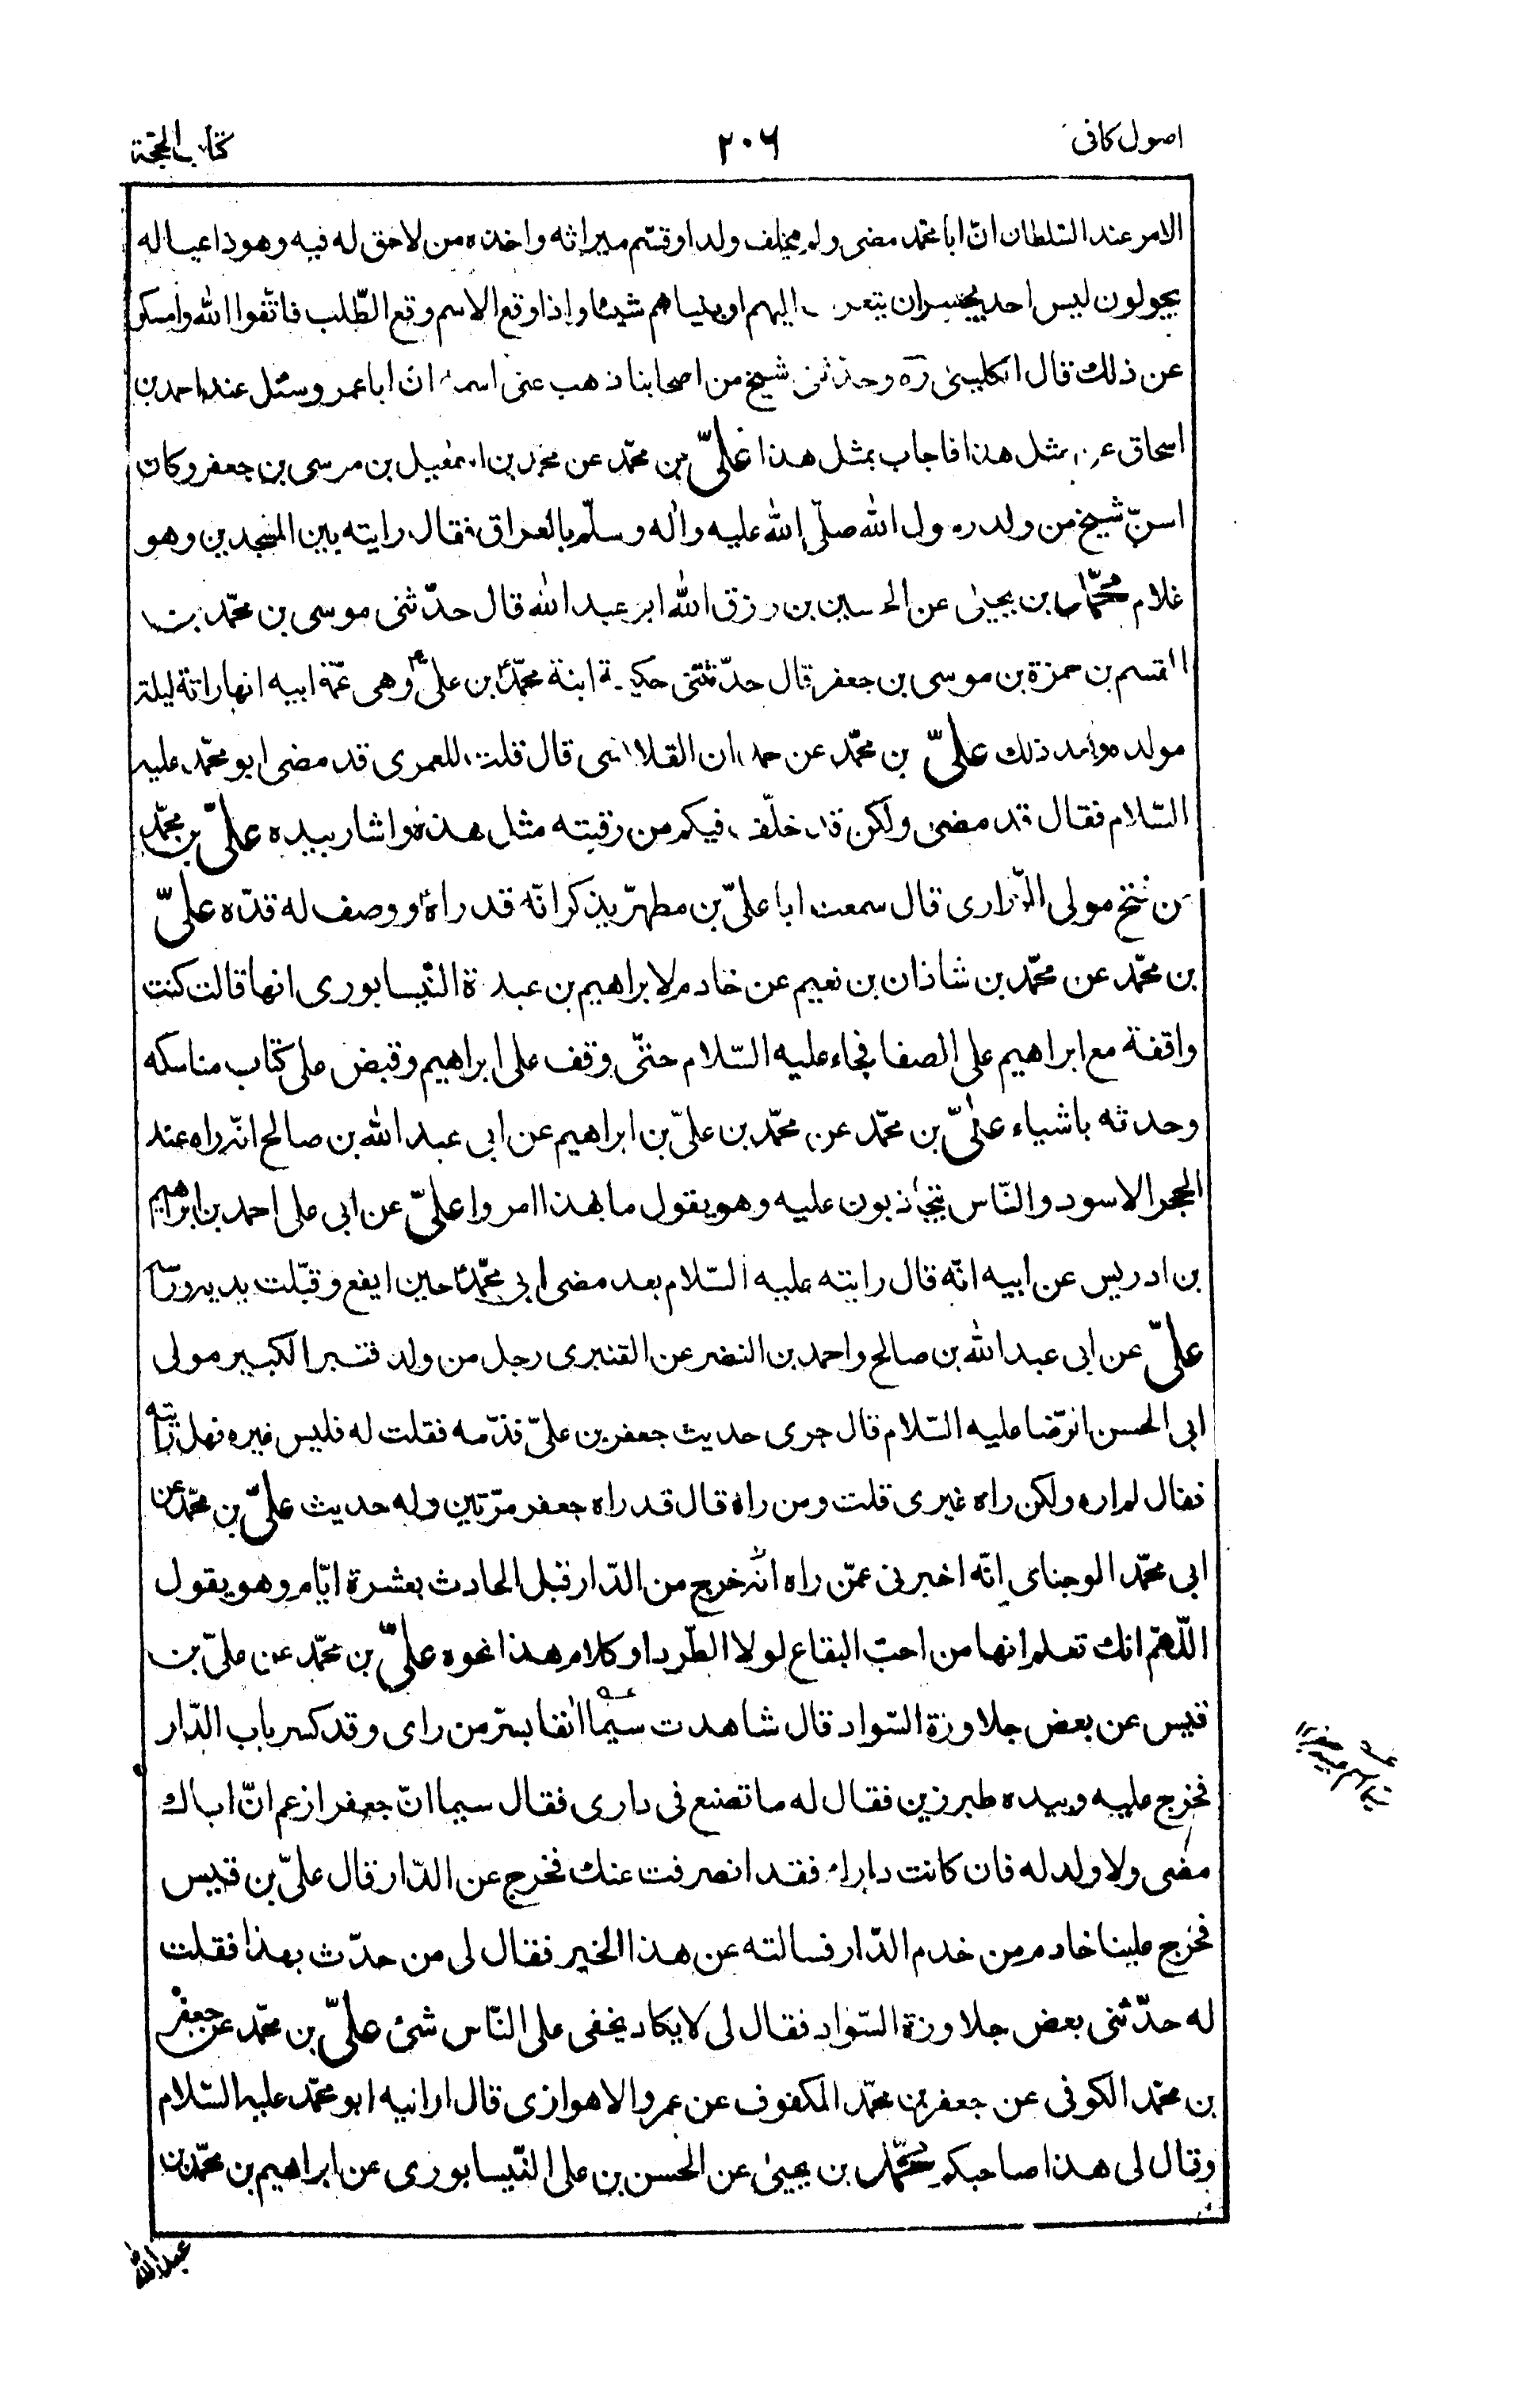 اصول كافى
٢٠٦
كتاب الحجّة
الامر عند السّلطان انّ ابا محمّد مضى ولم يخلف ولدا وقسّم ميراثه واخذه من لاحق له فيه وهو ذا عياله
يجولون ليس احد يجسر ان يتعرف اليهم او ينيلهم شيئا واذا وقع الاسم وقع الطّلب فاتّقوا الله وامسكوا
عن ذلك قال الكلينى ره وحدثنى شيخ من اصحابنا ذهب عنى اسمه ان ابا عمرو سئل عند احمد بن
اسحاق عن مثل هذا فاجاب بمثل هذا علىّ بن محمّد عن محمّد بن اسمعيل بن موسى بن جعفر وكان
اسنّ شيخ من ولد رسول الله صلّى الله عليه واٰله وسلّم بالعراق فقال رايته بين المسجدين وهو
غلام محمّد بن يحيىٰ عن الحسين بن رزق الله ابو عبد الله قال حدّثنى موسى بن محمّد بن
القسم بن حمزة بن موسى بن جعفر قال حدّثتنى حكيمة ابنة محمّدؑ بن علىّؑ وهى عمّة ابيه انها راته ليلة
مولده وبعد ذلك علىّ بن محمّد عن حمدان القلانسى قال قلت للعمرى قد مضى ابو محمّد عليه
السّلام فقال قد مضى ولكن قد خلّف فيكم من رقبته مثل هذه واشار بيده علىّ بن محمّد
عن فتح مولى الزّرارى قال سمعت ابا علىّ بن مطهّر يذكر انّه قد راٰه ووصف له قدّه علىّ
بن محمّد عن محمّد بن شاذان بن نعيم عن خادم لابراهيم بن عبدة النّيسابورى انها قالت كنت
واقفة مع ابراهيم على الصفا فجاء عليه السّلام حتّى وقف على ابراهيم وقبض على كتاب مناسكه
وحدثه باشياء علىّ بن محمّد عن محمّد بن علىّ بن ابراهيم عن ابى عبد الله بن صالح انّه راه عند
الحجر الاسود والنّاس يتجاذبون عليه وهو يقول ما بهذا امروا علىّ عن ابى على احمد بن ابراهيم
بن ادريس عن ابيه انّه قال رايته عليه السّلام بعد مضى ابى محمّدؑ حين ايفع وقبّلت يديه وراسه
علىّ عن ابى عبد الله بن صالح واحمد بن النضر عن القنبرى رجل من ولد قنبر الكبير مولى
ابى الحسن الرّضا عليه السّلام قال جرى حديث جعفر بن علىّ فذمّه فقلت له فليس غيره فهل رايته
فقال لم اره ولكن راه غيرى قلت ومن راه قال قد راه جعفر مرّتين وله حديث علىّ بن محمّد عن
ابى محمّد الوجناى انّه اخبرنى عمّن راه انّه خرج من الدّار قبل الحادث بعشرة ايّام وهو يقول
اللّهمّ انك تعلم انها من احبّ البقاع لولا الطّرد او كلام هذا نحوه علىّ بن محمّد عن علىّ بن
قيس عن بعض جلاوزة السّواد قال شاهدت سيما اٰنفا بسرّ من راى وقد كسر باب الدّار
فخرج عليه وبيده طبرزين فقال له ما تصنع فى دارى فقال سيما انّ جعفرا زعم انّ اباك
مضى ولا ولد له فان كانت دارك فقد انصرفت عنك فخرج عن الدّار قال علىّ بن قيس
فخرج علينا خادم من خدم الدّار فسالته عن هذا الخبر فقال لى من حدّث بهذا فقلت
له حدّثنى بعض جلاوزة السّواد فقال لى لا يكاد يخفى على النّاس شئ علىّ بن محمّد عن جعفر
بن محمّد الكوفى عن جعفر بن محمّد المكفوف عن عمرو الاهوازى قال ارانيه ابو محمّد عليه السّلام
وقال لى هذا صاحبكم محمّد بن يحيىٰ عن الحسن بن على النّيسابورى عن ابراهيم بن محمّد بن
عبد الله